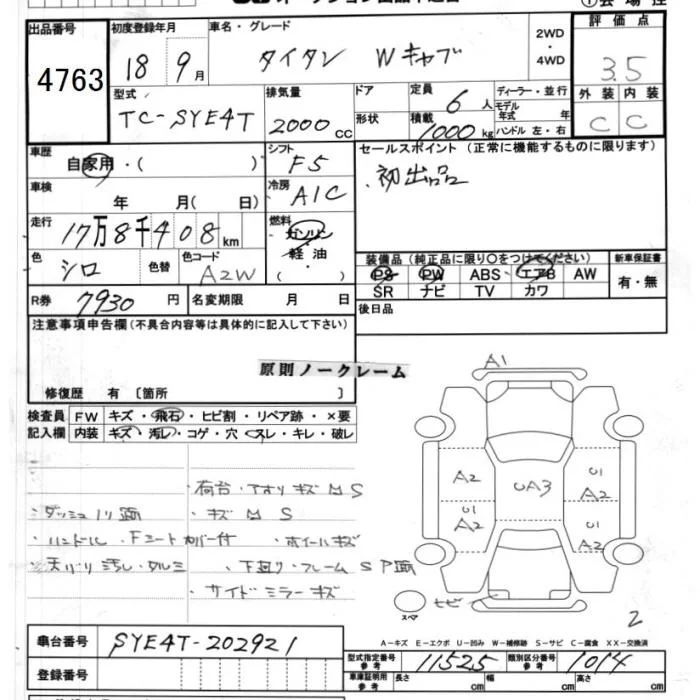 出品番号 4763
初度登録年月 18 9月
車名・グレード タイタン Wキャブ
2WD・4WD
評価点 3.5
型式 TC-SYE4T
排気量 2000cc
ドア 形状
定員 6人
積載 1000kg
ディーラー・並行
モデル年式 年
ハンドル 左・右
外装 C 内装 C
車歴 自家用・( )
シフト F5
セールスポイント (正常に機能するものに限ります)
初出品
車検 年 月 ( 日)
冷房 A/C
走行 17万8千408km
燃料 ガソリン 軽油 ( )
色 シロ 色替 色コード A2W
装備品 (純正品に限り〇をつけてください)
PS PW ABS エアB AW
SR ナビ TV カワ
新車保証書 有・無
R券 7930円 名変期限 月 日
後日品
注意事項申告欄 (不具合内容等は具体的に記入して下さい)
原則ノークレーム
修復歴 有 〔箇所 〕
検査員記入欄
FW キズ・飛石・ヒビ割・リペア跡・×要
内装 キズ・汚レ・コゲ・穴・スレ・キレ・破レ
荷台・アオリキズ M S
ダッシュノリ跡 ・キズ M S
ハンドル Fシートカバー付 ・ホイールキズ
天バリ汚レ・タルミ ・下廻り・フレーム S P跡
サイドミラーキズ
A1
A2 UA3 U1 A2
U1 A2 U1 A2
スペア
ヒビ
2
A-キズ E-エクボ U-凹み W-補修跡 S-サビ C-腐食 XX-交換済
車台番号 SYE4T-202921
型式指定番号 参考 11525 類別区分番号 参考 1014
登録番号
車庫証明用 参考 長さ cm 幅 cm 高さ cm